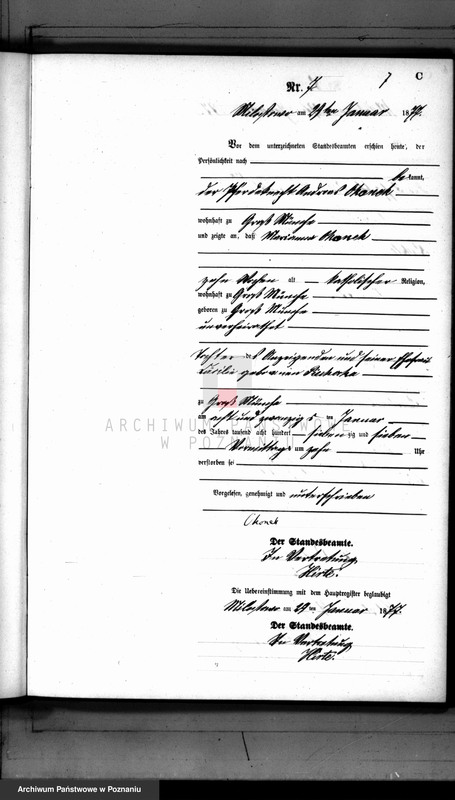 7 C
Nr. 7
Milostowo am 29ten Januar 1877.
Vor dem unterzeichneten Standesbeamten erschien heute, der
Persönlichkeit nach
be kannt,
der Pferdeknecht Andreas Okonek
wohnhaft zu Groß Münche
und zeigte an, daß Marianna Okonek
zehn Wochen alt katholischer Religion,
wohnhaft zu Groß Münche
geboren zu Groß Münche
unverheirathet
Tochter des Anzeigenden und seiner Ehefrau
geborenen
zu Groß Münche
am acht und zwanzigs ten Januar
des Jahres tausend acht hundert siebenzig und sieben
Vormittags um zehn Uhr
verstorben sei
Vorgelesen, genehmigt und unterschrieben
Okonek
Der Standesbeamte.
In Vertretung
Hirte.
Die Uebereinstimmung mit dem Hauptregister beglaubigt
Milostowo am 29 ten Januar 1877.
Der Standesbeamte.
In Vertretung
Hirte.
ARCHIWUM PAŃSTWOWE
W POZNANIU
Archiwum Państwowe w Poznaniu